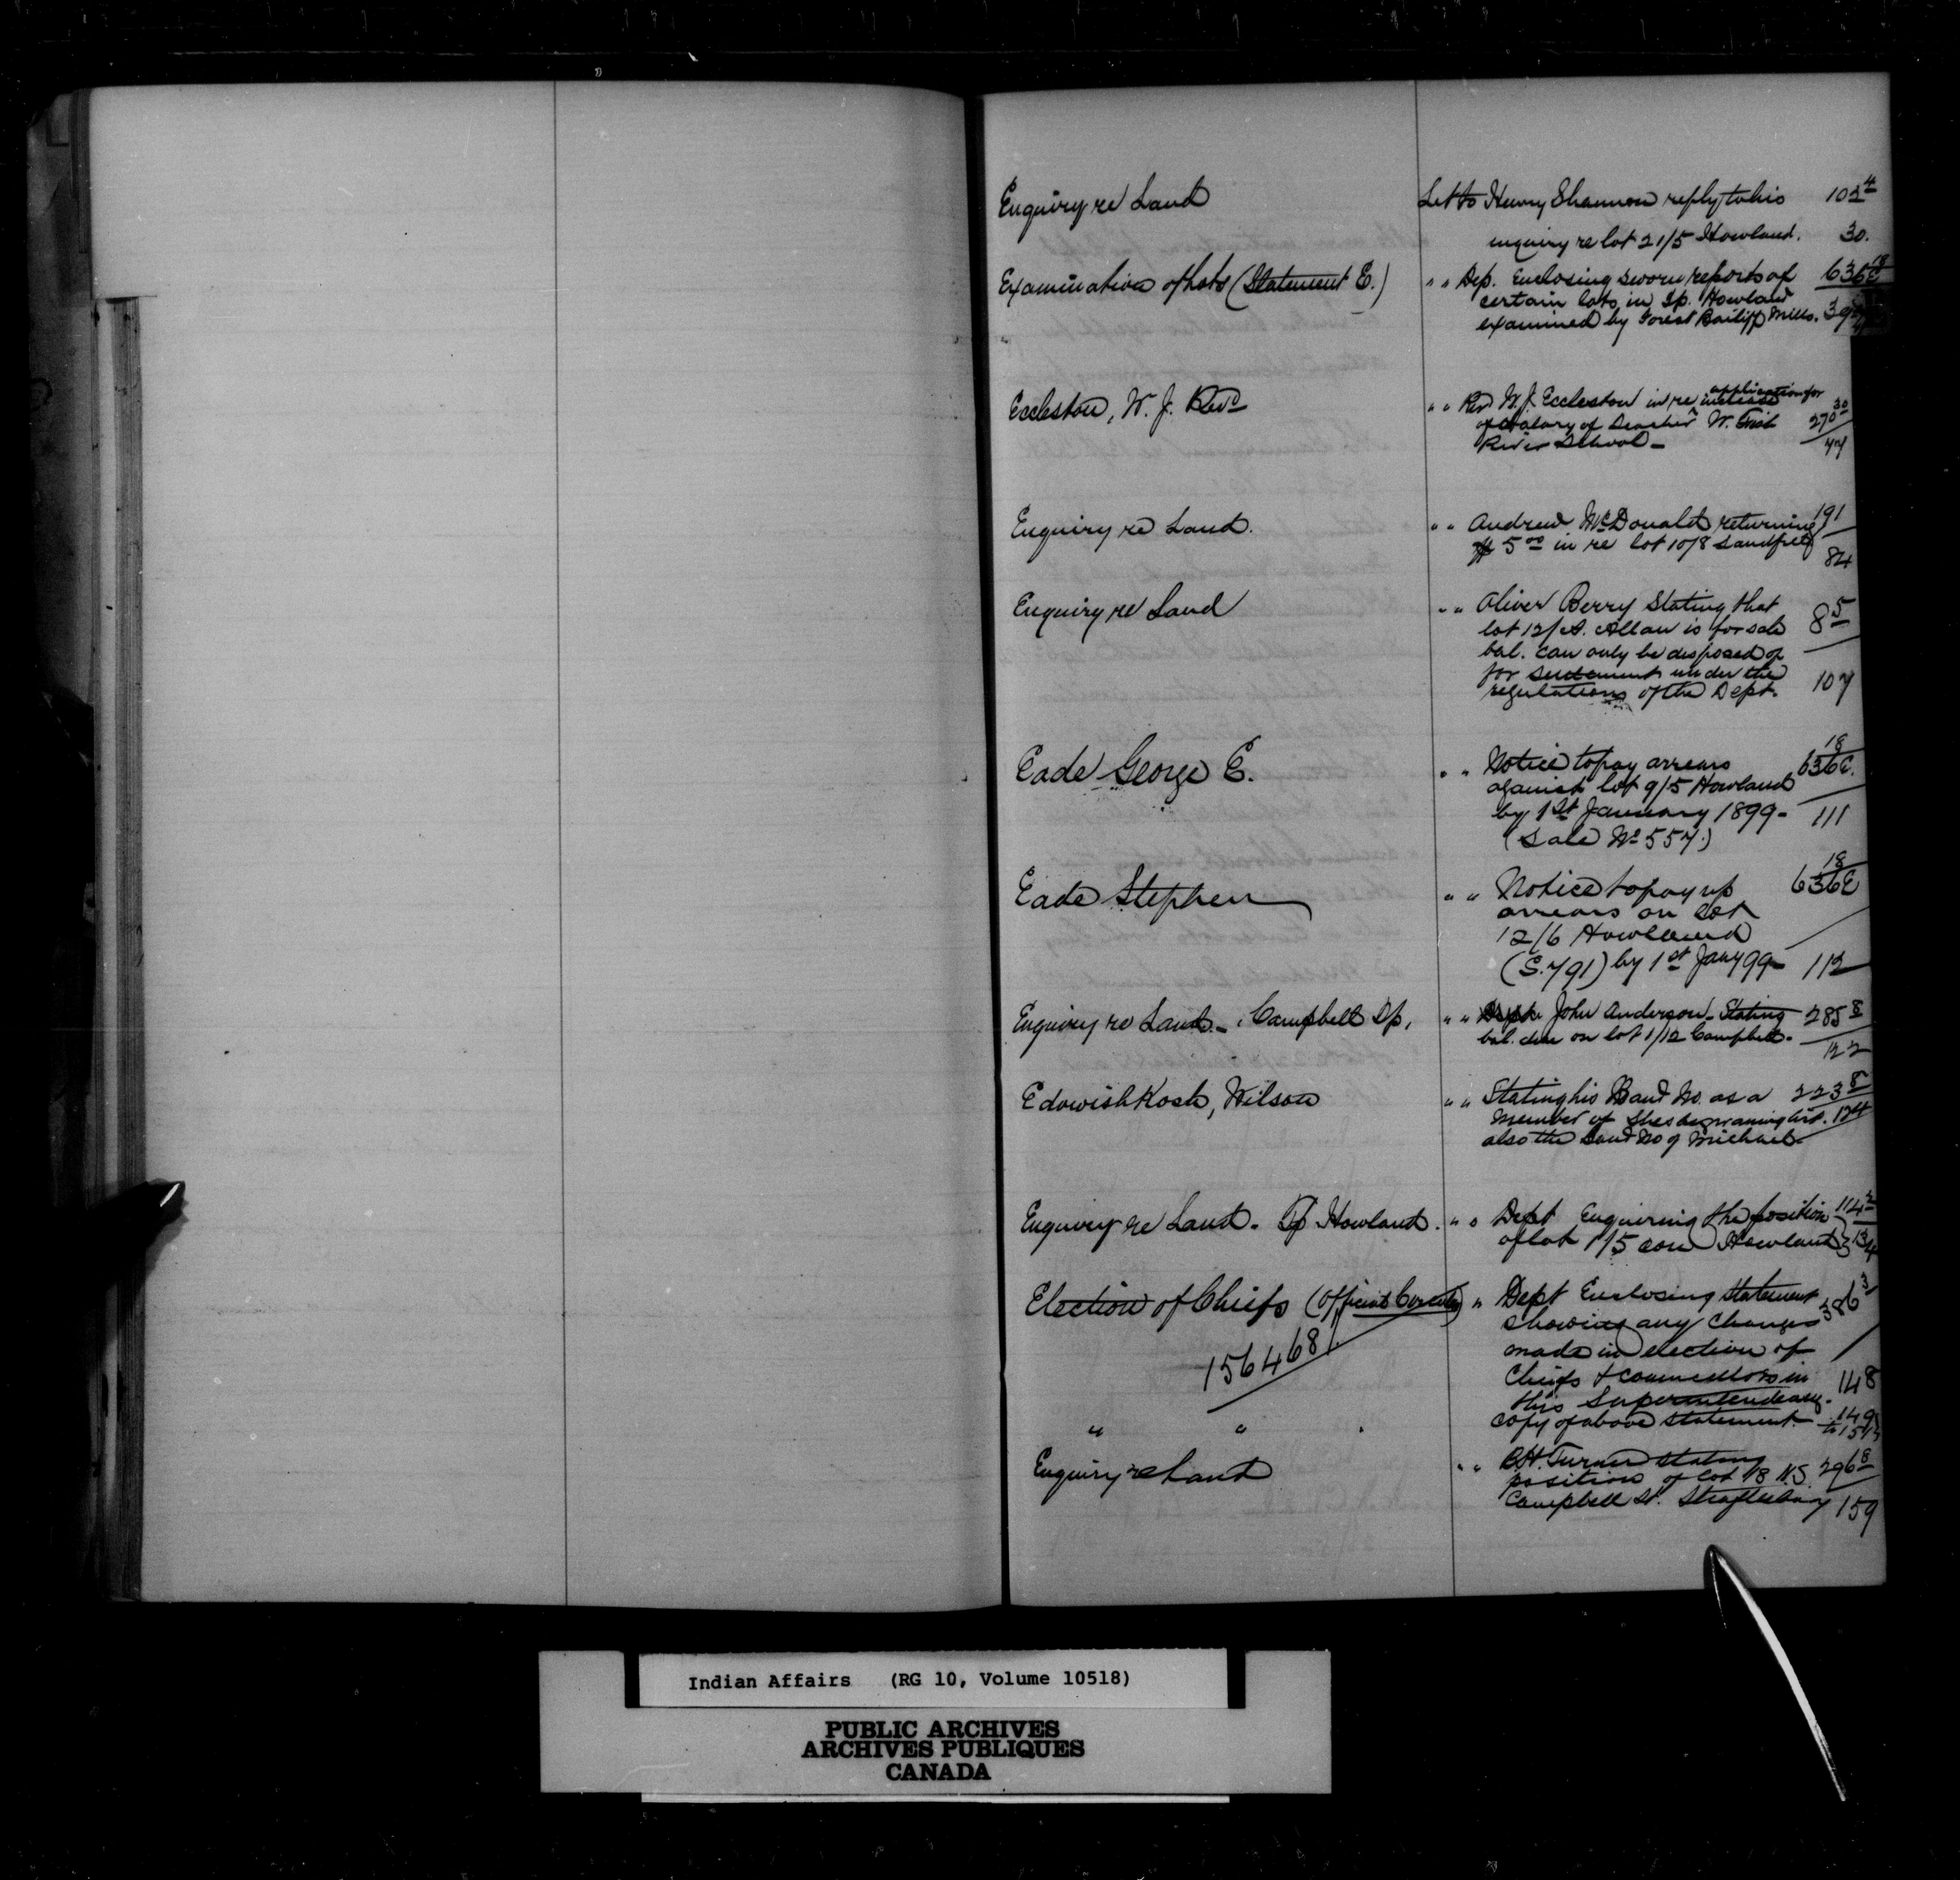 Enquiry re Land Let to Henry Shannon reply to his 103 4
enquiry re lot 21/5 Howland. 30.
Examination of Lots (Statement E.) " " Dep. Enclosing sworn reports of 636E 18
certain lots in Tp. Howland
examined by Forest Bailiff Mills. 39
Eccleston, W. J. Revd " " Rev W. J. Eccleston in re increase application for
of salary of Teacher W. 270 30
River School - 47
Enquiry re Land. " " Andrew McDonald returning 191
$5 00 in re lot 10/8 Sandfield 84
Enquiry re Land " " Oliver Berry Stating that
lot 12/A. Allan is for sale 8 5
bal. can only be disposed of
for settlement under the
regulations of the Dept. 107
Eade George E. " " Notice to pay arrears 636E. 18
against lot 9/5 Howland
by 1st January 1899 - 111
(Sale No 557.)
Eade Stephen " " Notice to pay up 636E 18
arrears on lot
12/6 Howland
(S. 791) by 1st Jany 99 - 112
Enquiry re Land - Campbell Tp. " " John Anderson Stating 285 8
bal. due on lot 1/12 Campbell. 122
Edowishkosh, Wilson " " Stating his Band No. as a 223 8
Member of Sheshegwaning 124
also the Band No of Michael.
Enquiry re Land. Tp Howland. " " Dept Enquiring the position 114 2
of lot 1/5 con Howland } 134
Election of Chiefs (Official Circular) " Dept Enclosing Statement 386 3
showing any changes
156468 made in election of
Chiefs & councillors in 148
this Superintendency.
" " copy of above statement 149
to 151
Enquiry re Land " " B.H. Turner stating
position of lot 18 N.S. 296 8
Campbell St. Shaftesbury 159
Indian Affairs (RG 10, Volume 10518)
PUBLIC ARCHIVES
ARCHIVES PUBLIQUES
CANADA